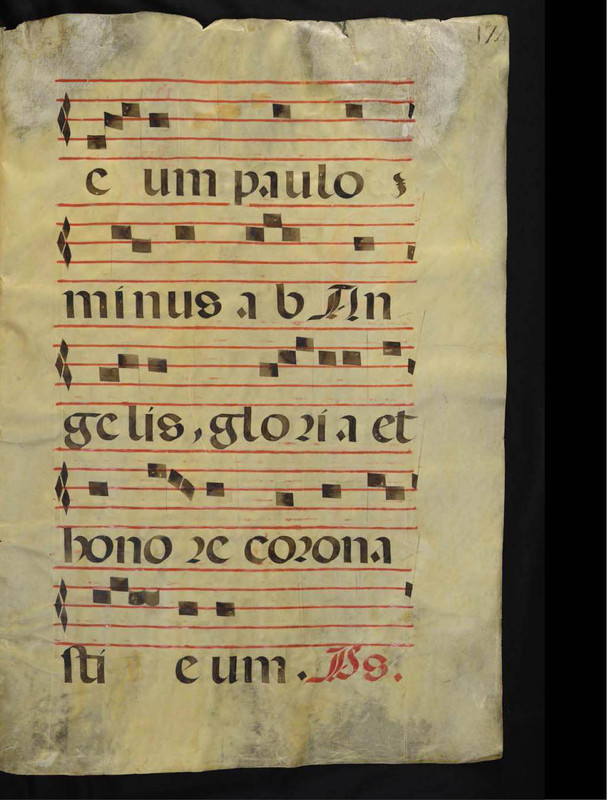 e um paulo
minus a b An
gelis, gloria et
hono re corona
sti eum. Ps.